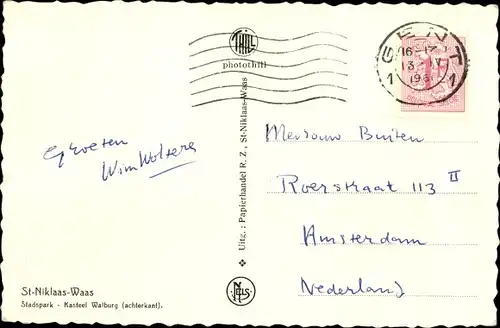 THILL
photothill
GENT
16-17
1961
1 1
Groeten
Wim Wolters
Mevrouw Buiten
Roerstraat 113 II
Amsterdam
Nederland
Uitg.: Papierhandel R. Z., St-Niklaas-Waas
NELS
St-Niklaas-Waas
Stadspark - Kasteel Walburg (achterkant).